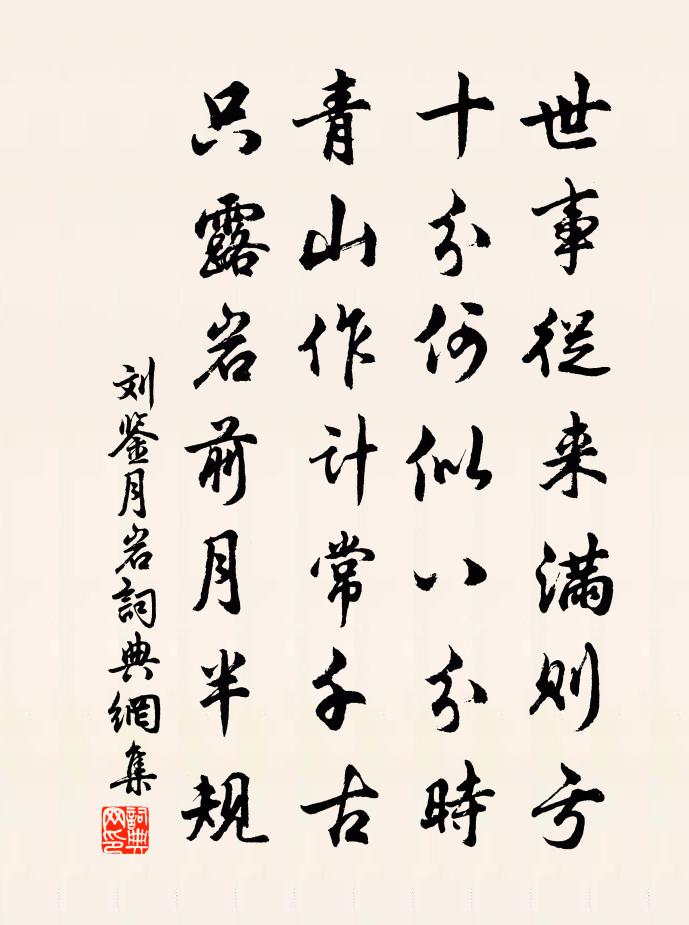 世事從来满则亏
十分何似八分時
青山作计常千古
只露岩前月半规
刘鉴月岩詞典網集
詞典网印